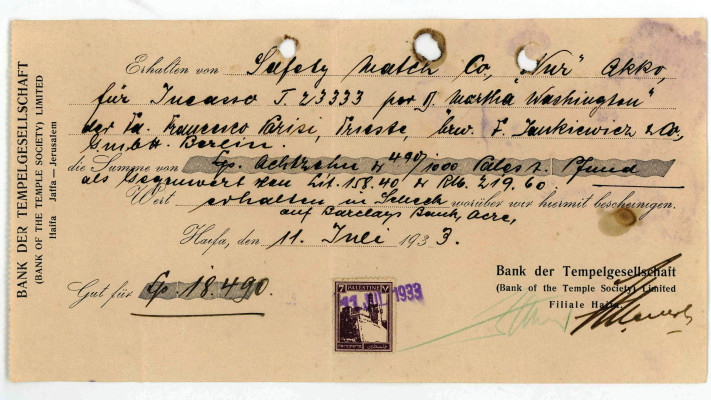 BANK DER TEMPELGESELLSCHAFT
(BANK OF THE TEMPLE SOCIETY) LIMITED
Haifa Jaffa — Jerusalem
Erhalten von Safety Match Co, "Nur" Akko,
für Incasso J. 23333 per D. Martha Washington"
der Fa. Francesco Parisi, Trieste, bzw. F. Jankiewicz & Co,
GmbH. Berlin.
die Summe von £p. Achtzehn & 490/1000 Paläst. Pfund
als Gegenwert von Lit. 158.40 & Rmk. 219.60
Wert erhalten in Scheck worüber wir hiermit bescheinigen.
auf Barclays Bank, Acre,
Haifa, den 11. Juli 1933.
Gut für £p. 18.490.
7 PALESTINE
11 JUL 1933
Bank der Tempelgesellschaft
(Bank of the Temple Society) Limited
Filiale Haifa.